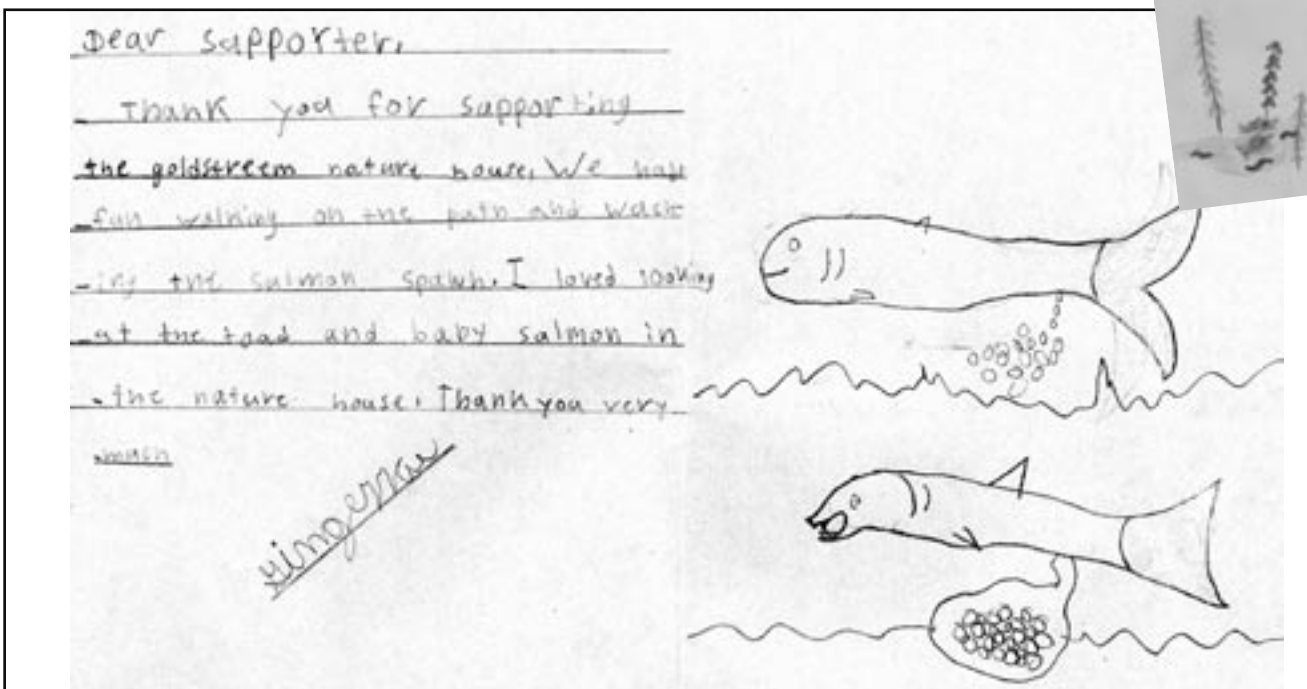 Dear supporter,
Thank you for supporting
the goldstreem nature house. We had
fun walking on the path and
-ing the salmon spawn. I loved looking
at the toad and baby salmon in
the nature house. Thank you very